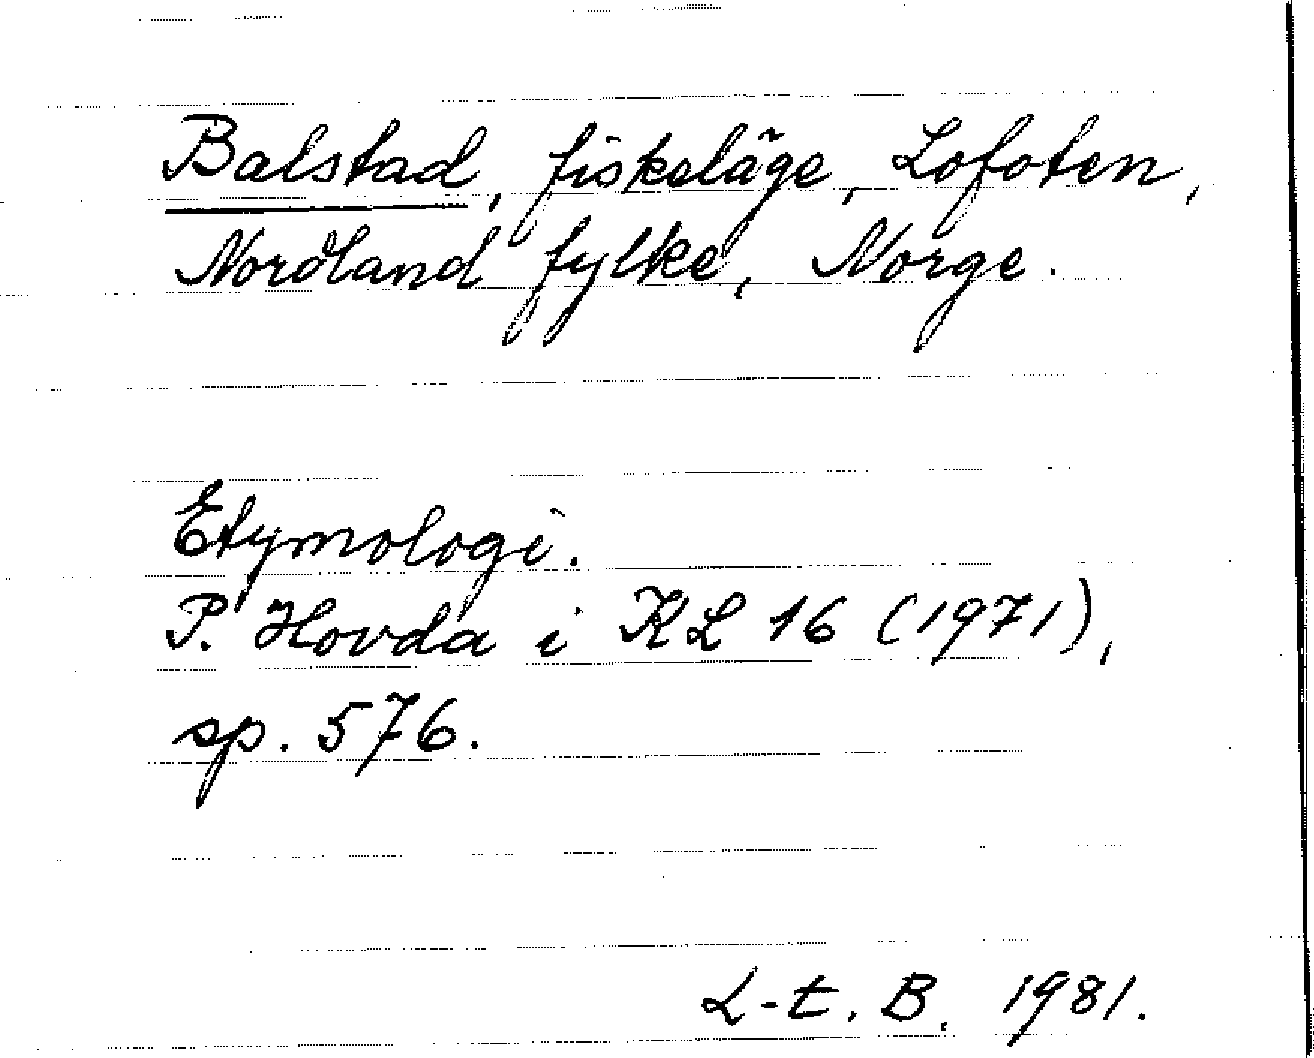 Balstad, fiskeläge, Lofoten,
Nordland fylke, Norge.
Etymologi.
P. Hovda i KL 16 (1971),
sp. 576.
L-t. B. 1981.